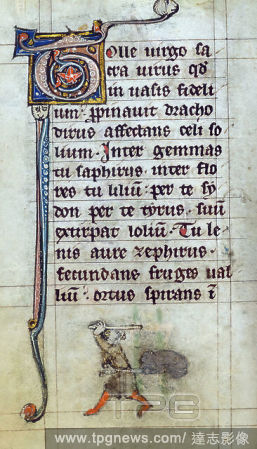 Tolle uirgo sa
cra uirus qd̄
in uasis fideli
um· ꝓpinauit dracho
dirus affectans celi so
lium· Inter gemmas
tu saphirus· inter flo
res tu liliū: per te sy
don per te tyrus· suū
extirpat lolium· Tu le
nis aure zephirus·
fecundans fruges ual
liū· ortus spirans ī
TPG
www.tpgnews.com/ 達志影像